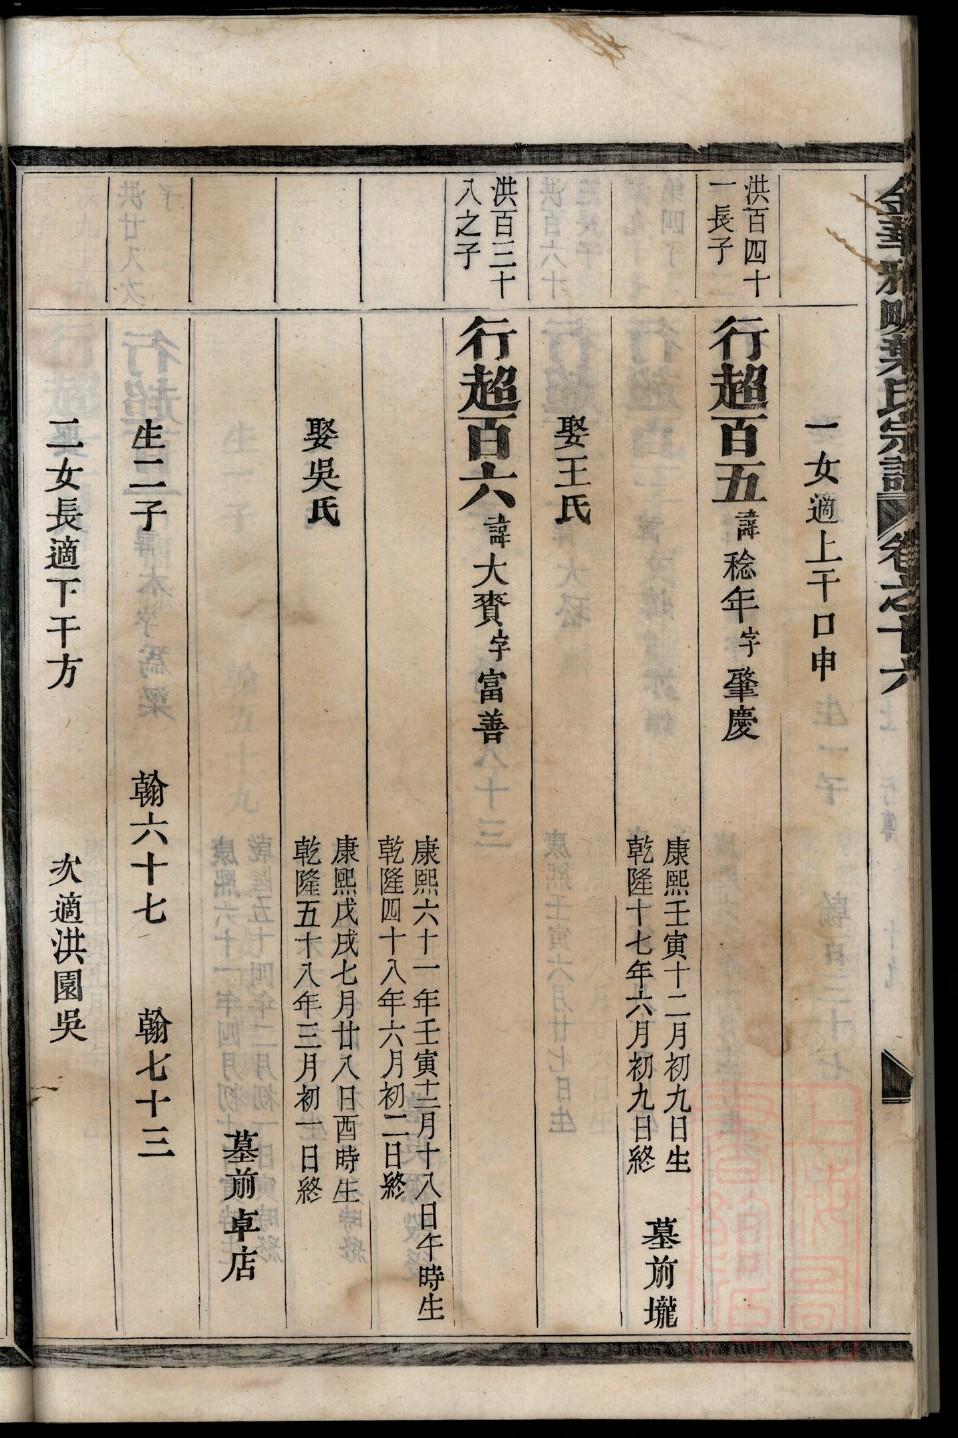 金華雅畈葉氏宗譜 卷之十六
一女適上干口申
洪百四十
一長子
行超百五 諱稔年字肇慶
康熙壬寅十二月初九日生
乾隆十七年六月初九日終
墓前壠
娶王氏
洪百三十
八之子
行超百六 諱大賚字富善
康熙六十一年壬寅十二月十八日午時生
乾隆四十八年六月初二日終
娶吳氏
康熙戊戌七月廿八日酉時生
乾隆五十八年三月初一日終
墓前卓店
生二子 翰六十七 翰七十三
二女長適下干方 次適洪園吳